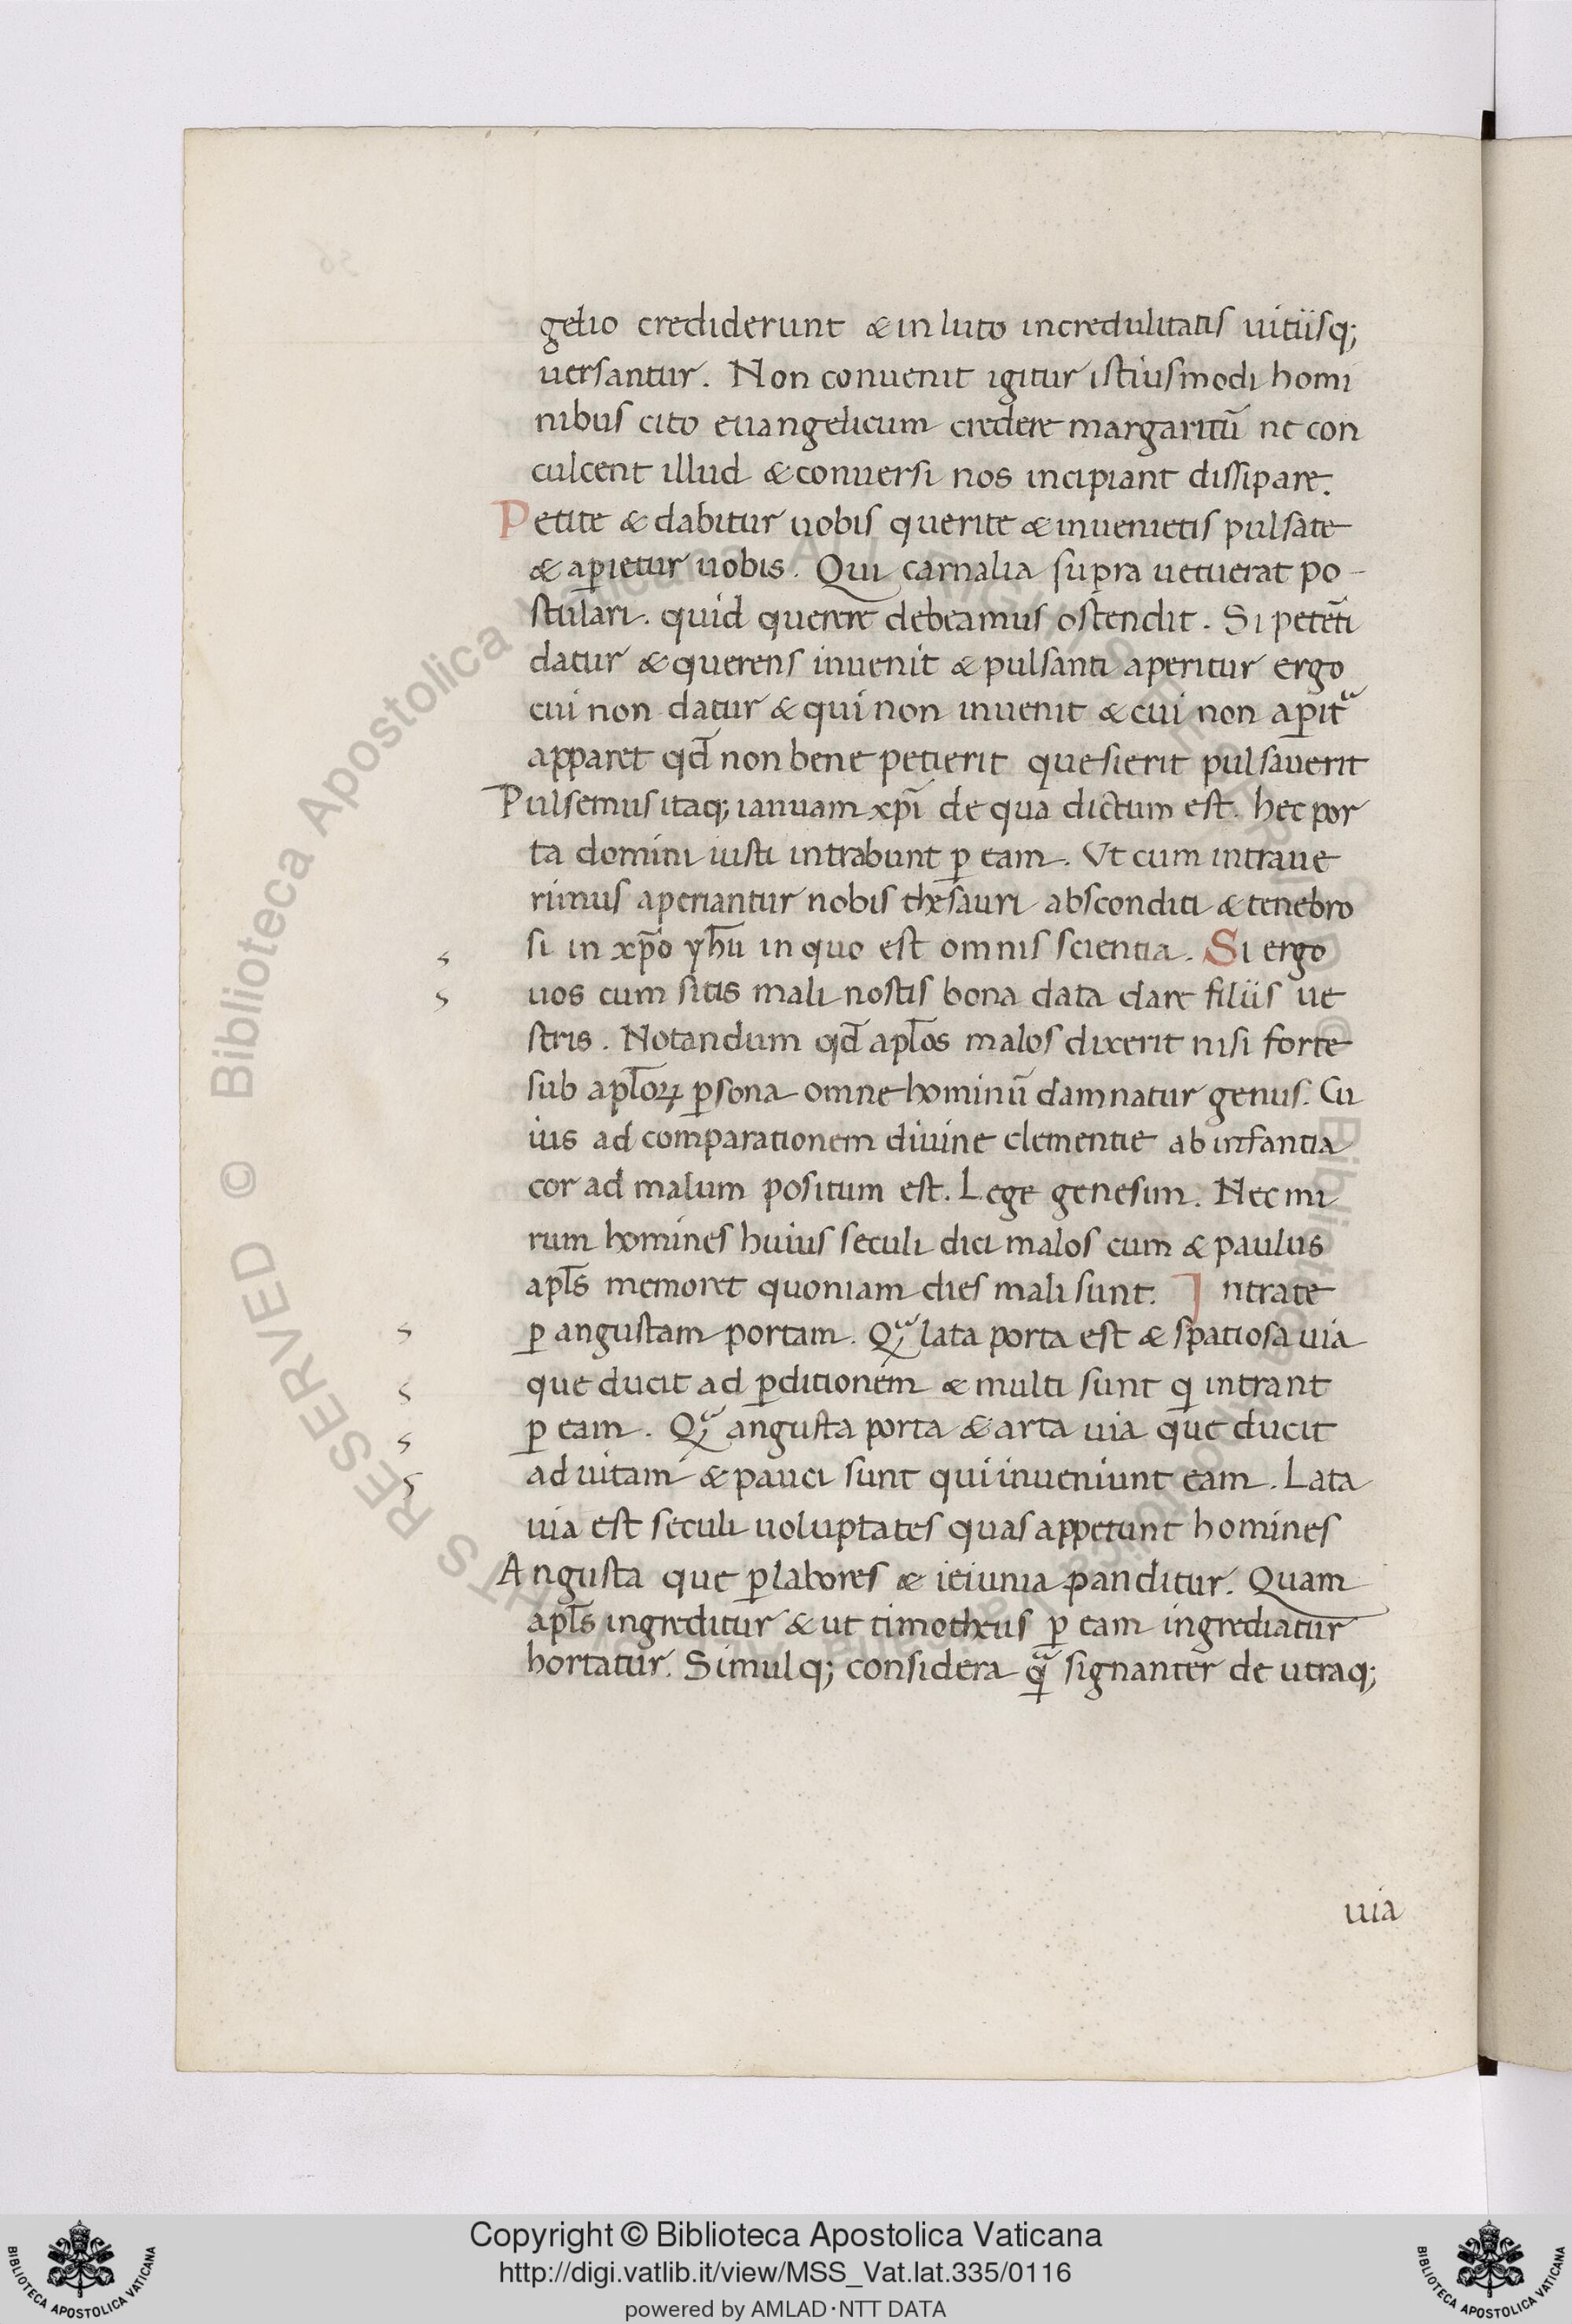 gelio crediderunt & in luto incredulitatis uitiisq;
uersantur. Non conuenit igitur istiusmodi homi
nibus cito euangelicum credere margaritū ne con
culcent illud & conuersi nos incipiant dissipare.
Petite & dabitur uobis querite & inuenietis pulsate
& ap̲ietur uobis. Qui carnalia supra uetuerat po-
stulari. quid querere debeamus ostendit. Si petēti
datur & querens inuenit & pulsanti aperitur ergo
cui non datur & qui non inuenit & cui non ap̲itᷣ
apparet qd̄ non bene petierit quesierit pulsauerit
Pulsemus itaq; ianuam xp̄i de qua dictum est. hec por
ta domini iusti intrabunt p̲ eam. Vt cum intraue
rimus aperiantur nobis thesauri absconditi & tenebro
si in xp̄o yh̄u in quo est omnis scientia. Si ergo
uos cum sitis mali nostis bona data dare filiis ue
stris. Notandum qd̄ apl̄os malos dixerit nisi forte
sub apl̄oꝝ p̲sona omne hominū damnatur genus. Cu
ius ad comparationem diuine clementie ab infantia
cor ad malum positum est. Lege genesim. Nec mi
rum homines huius seculi dici malos cum & paulus
apl̄s memoret quoniam dies mali sunt. Intrate
p̲ angustam portam. Qᷓ lata porta est & spatiosa uia
que ducit ad p̲ditionem & multi sunt q̲ intrant
p̲ eam. Qᷓ angusta porta & arta uia que ducit
ad uitam & pauci sunt qui inueniunt eam. Lata
uia est seculi uoluptates quas appetunt homines
Angusta que p̲ labores & ieiunia panditur. Quam
apl̄s ingreditur & ut timotheus p̲ eam ingrediatur
hortatur. Simulq; considera qᷓ signanter de utraq;
uia
Copyright © Biblioteca Apostolica Vaticana
http://digi.vatlib.it/view/MSS_Vat.lat.335/0116
powered by AMLAD·NTT DATA
BIBLIOTECA APOSTOLICA VATICANA
BIBLIOTECA APOSTOLICA VATICANA